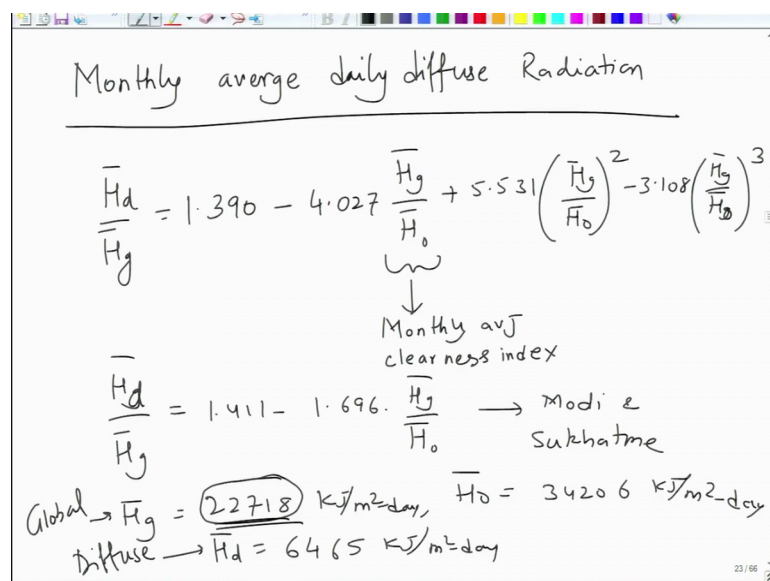 Monthly averge daily diffuse Radiation
H̅d/H̅g = 1.390 − 4.027 H̅g/H̅o + 5.531 (H̅g/H̅o)² − 3.108 (H̅g/H̅o)³
Monthly avg
clearness index
H̅d/H̅g = 1.411 − 1.696. H̅g/H̅o → Modi &
Sukhatme
Global → H̅g = 22718 kJ/m²-day, H̅o = 34206 kJ/m²-day
Diffuse → H̅d = 6465 kJ/m²-day
23 / 66